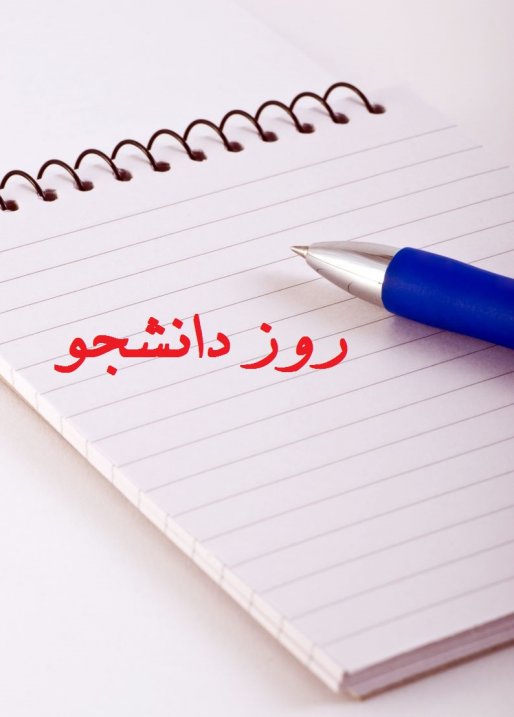 روز دانشجو